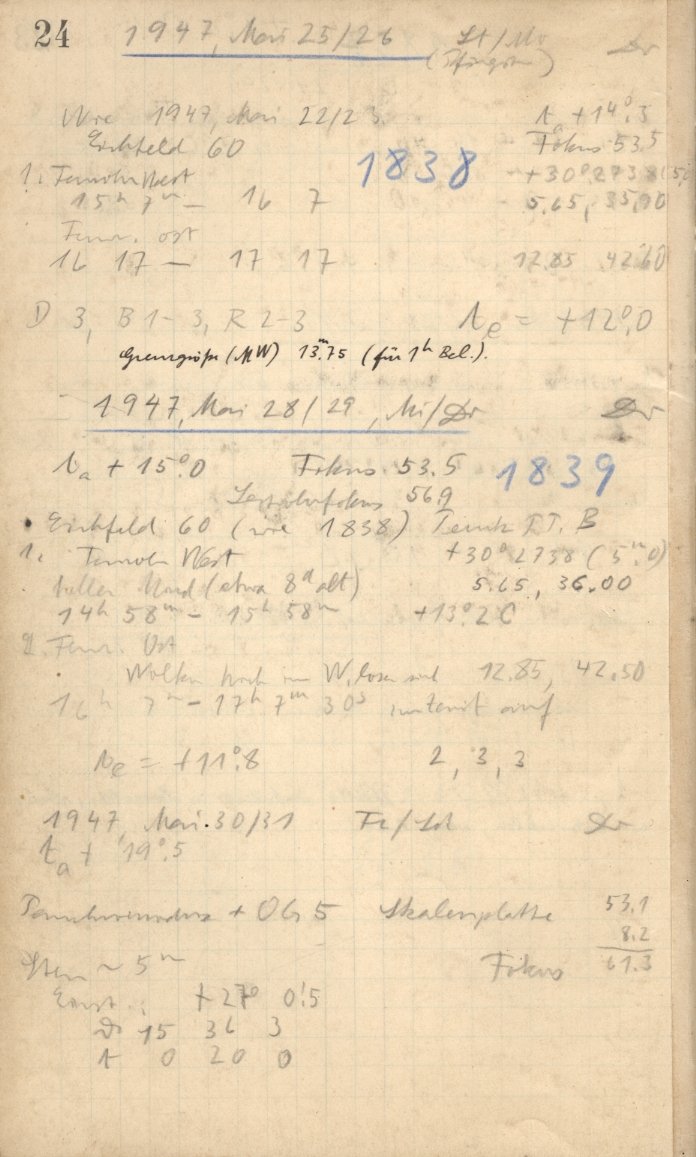 24 1947, Mai 25/26 St/Mo Dr
(Pfingsten)
Wie 1947, Mai 22/23 ta +14°.3
Eichfeld 60 Fokus 53.5
1838
1. West +30° 2738 (5.0)
15h 7m — 16 7 5.65, 35.90
Fernr. ost
16 17 — 17 17 12.85 42.60
D 3, B 1-3, R 2-3 te = +12°.0
Grenzgröße (MW) 13m.75 (für 1h Bel.).
1947, Mai 28/29, Mi/Do Dr
ta + 15°.0 Fokus 53.5 1839
56.9
Eichfeld 60 (wie 1838) B
1. West +30° 2738 (5m.0)
heller Mond (etwa 8d alt) 5.65, 36.00
14h 58m — 15h 58m +13°.2 C
2. Fernr. Ost
Wolken hoch im W, 12.85, 42.50
16h 7m — 17h 7m 30s auf
te = +11°.8 2, 3, 3
1947, Mai 30/31 Fr/ Dr
ta + 19°.5
+ Ob 5 Skalenplatte 53.1
8.2
Stern ~ 5m Fokus 61.3
Einst.: +27° 0'.5
15 36 3
t 0 20 0